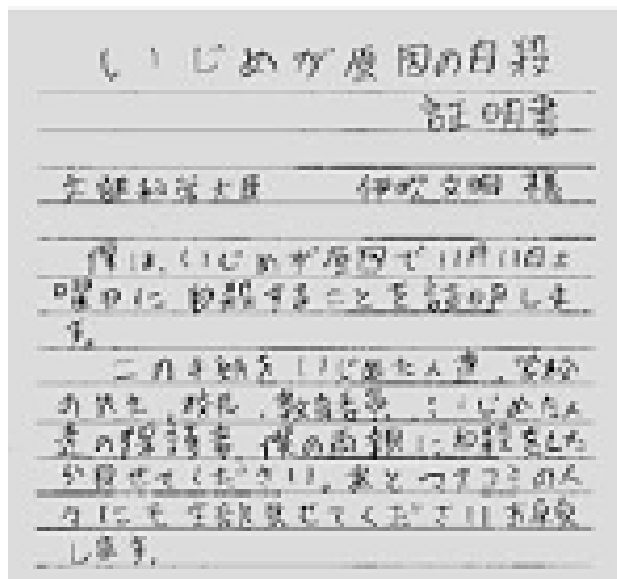 いじめが原因の自殺
証明書
文部科学大臣 伊吹文明 様
僕は、いじめが原因で11月11日土
曜日に自殺することを証明しま
す。
この手紙をいじめた人達、学校
の先生、校長、教育委員、いじめた人
達の保護者、僕の両親に自殺をした
ら見せてください。あとマスコミの人
々にも全部見せてくださいお願い
します。